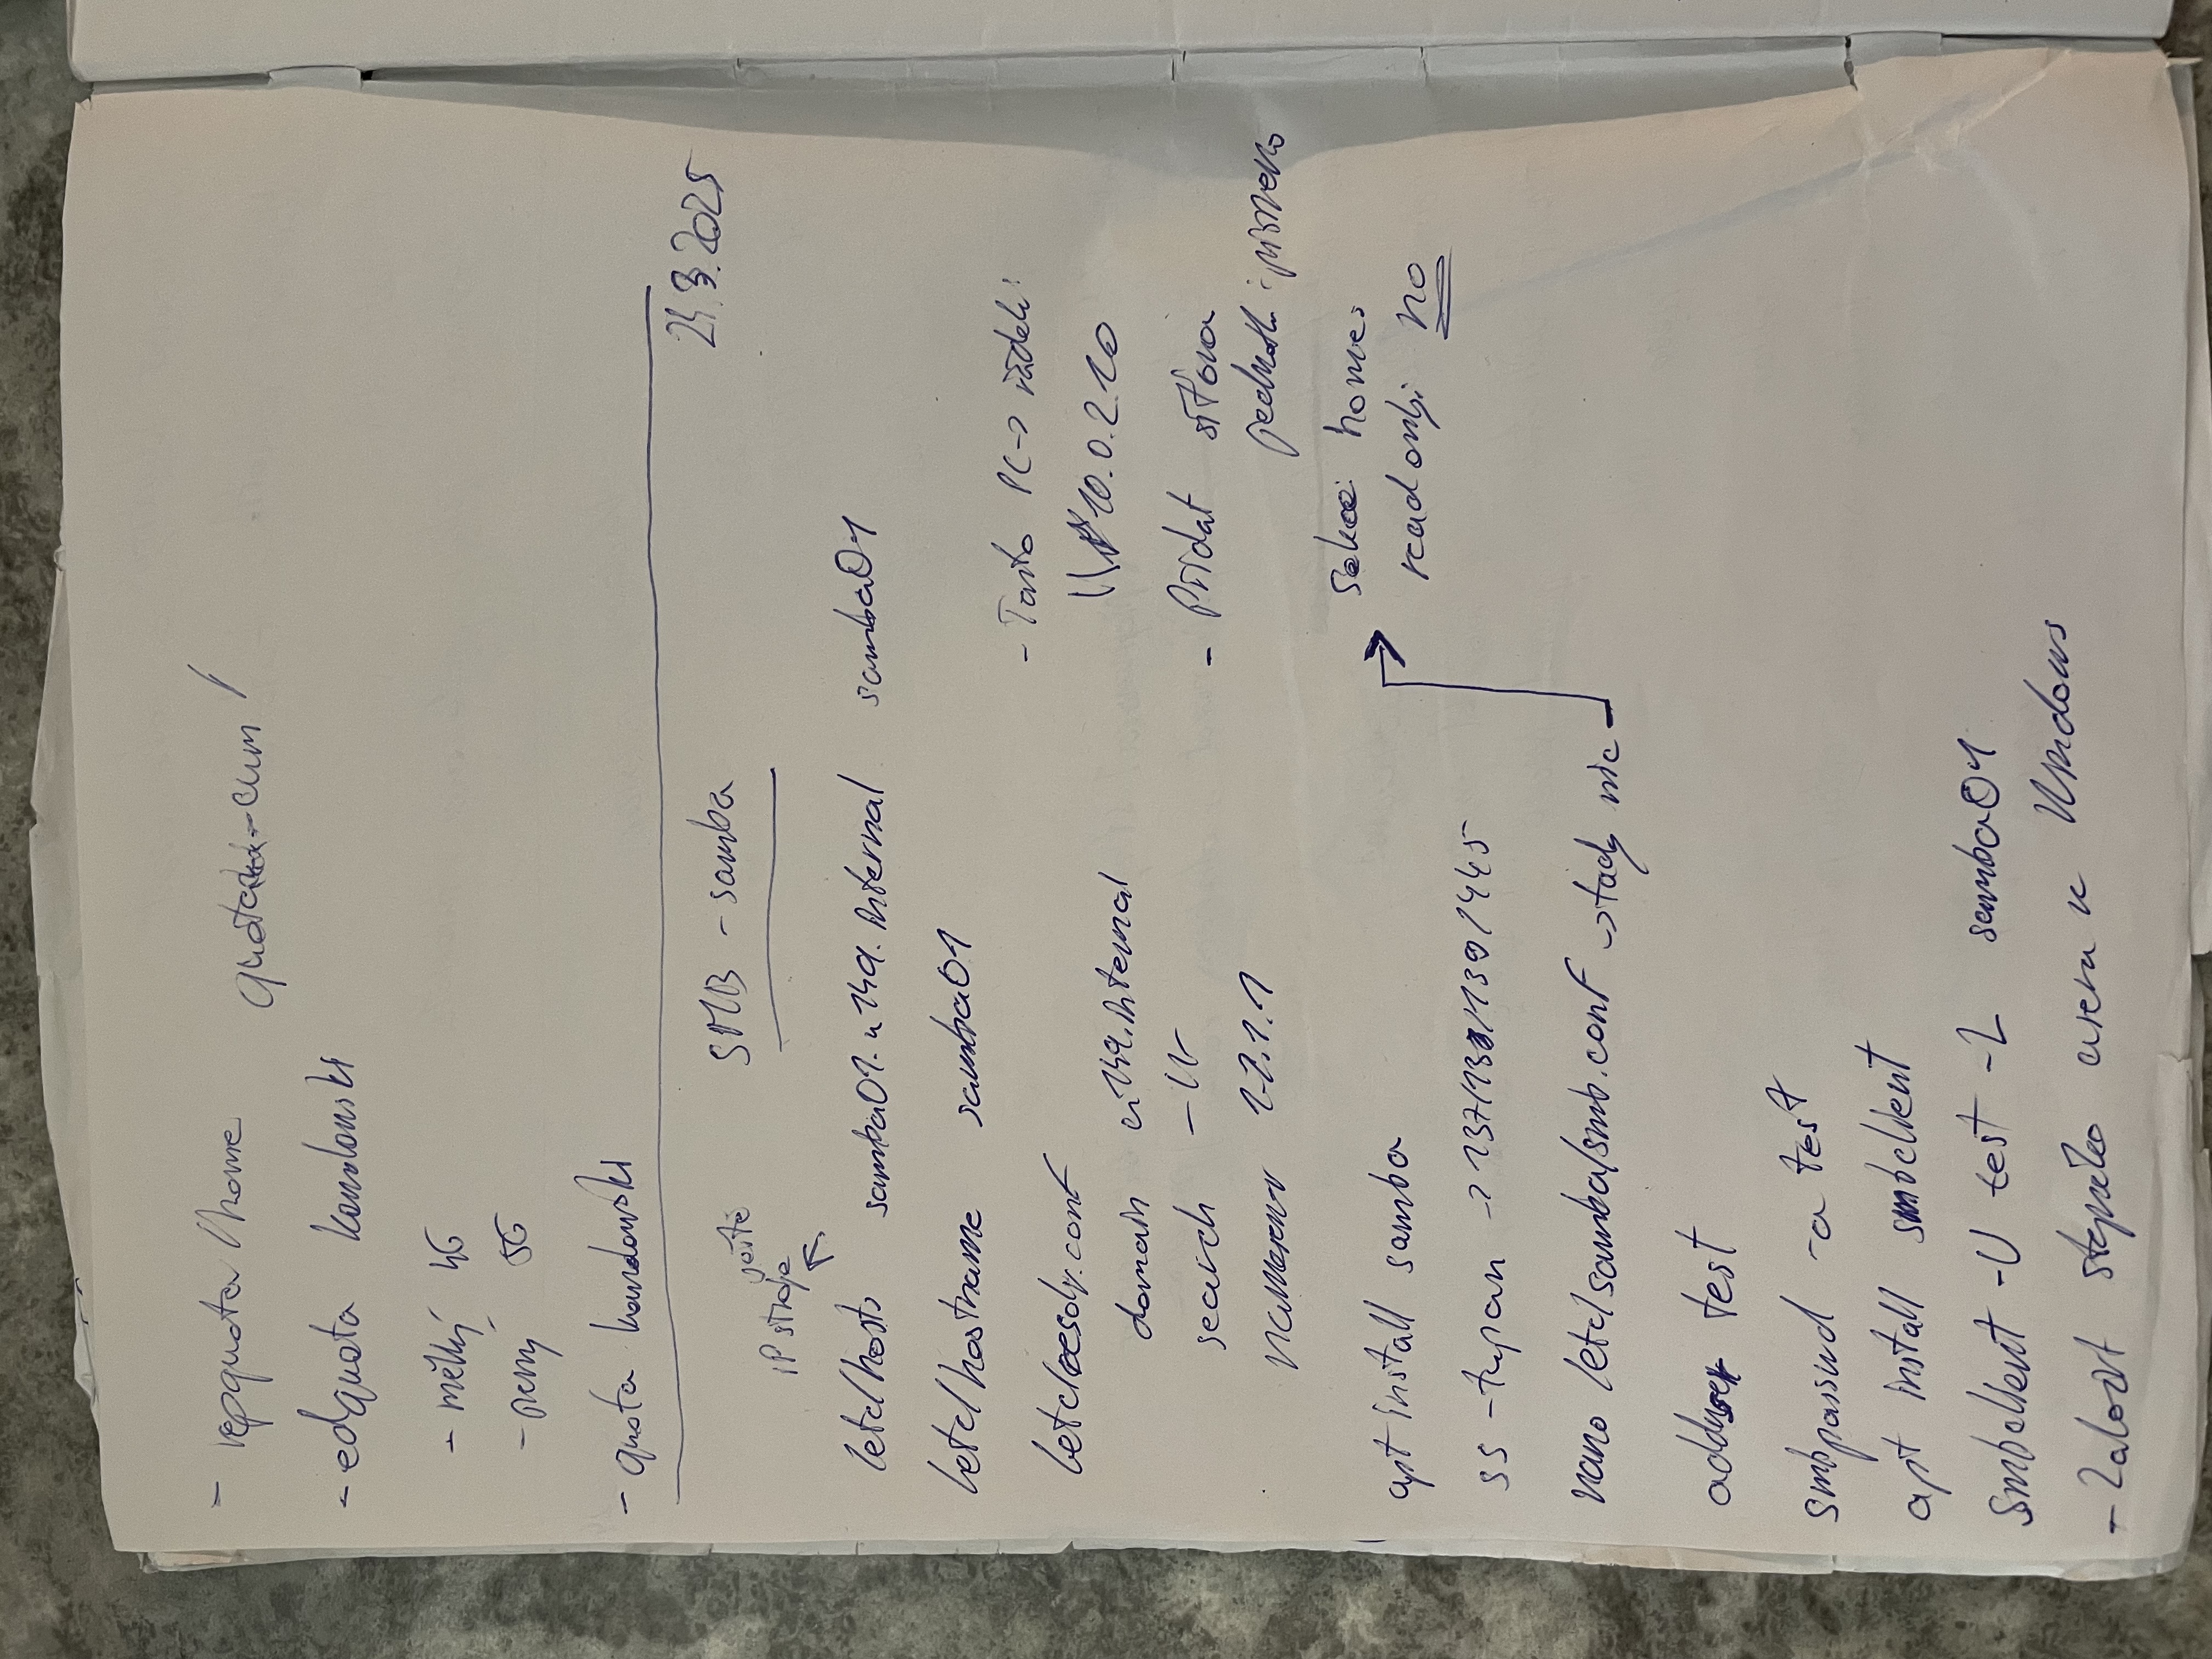 - repquota /home
quota-cum /
- edquota kandowski
- měkký 4G
- pevný 5G
- quota kandowski
24.3.2025
SMB - samba
IP stroje
ještě
/etc/hosts samba01.u149.internal samba01
/etc/hostname samba01
/etc/resolv.conf
domain u149.internal
search -||-
nameserver 1.1.1.1
- Tento PC -> vzdálí:
\\10.0.2.10
- Přidat síťová
jednotka: písmeno
apt install samba
ss -tupan -> 137/138/139/445
nano /etc/samba/smb.conf -> tady nic
Sekce homes
read only: no
adduser test
smbpasswd -a test
apt install smbclient
smbclient -U test -L samba01
- založit stejného usera u Windows